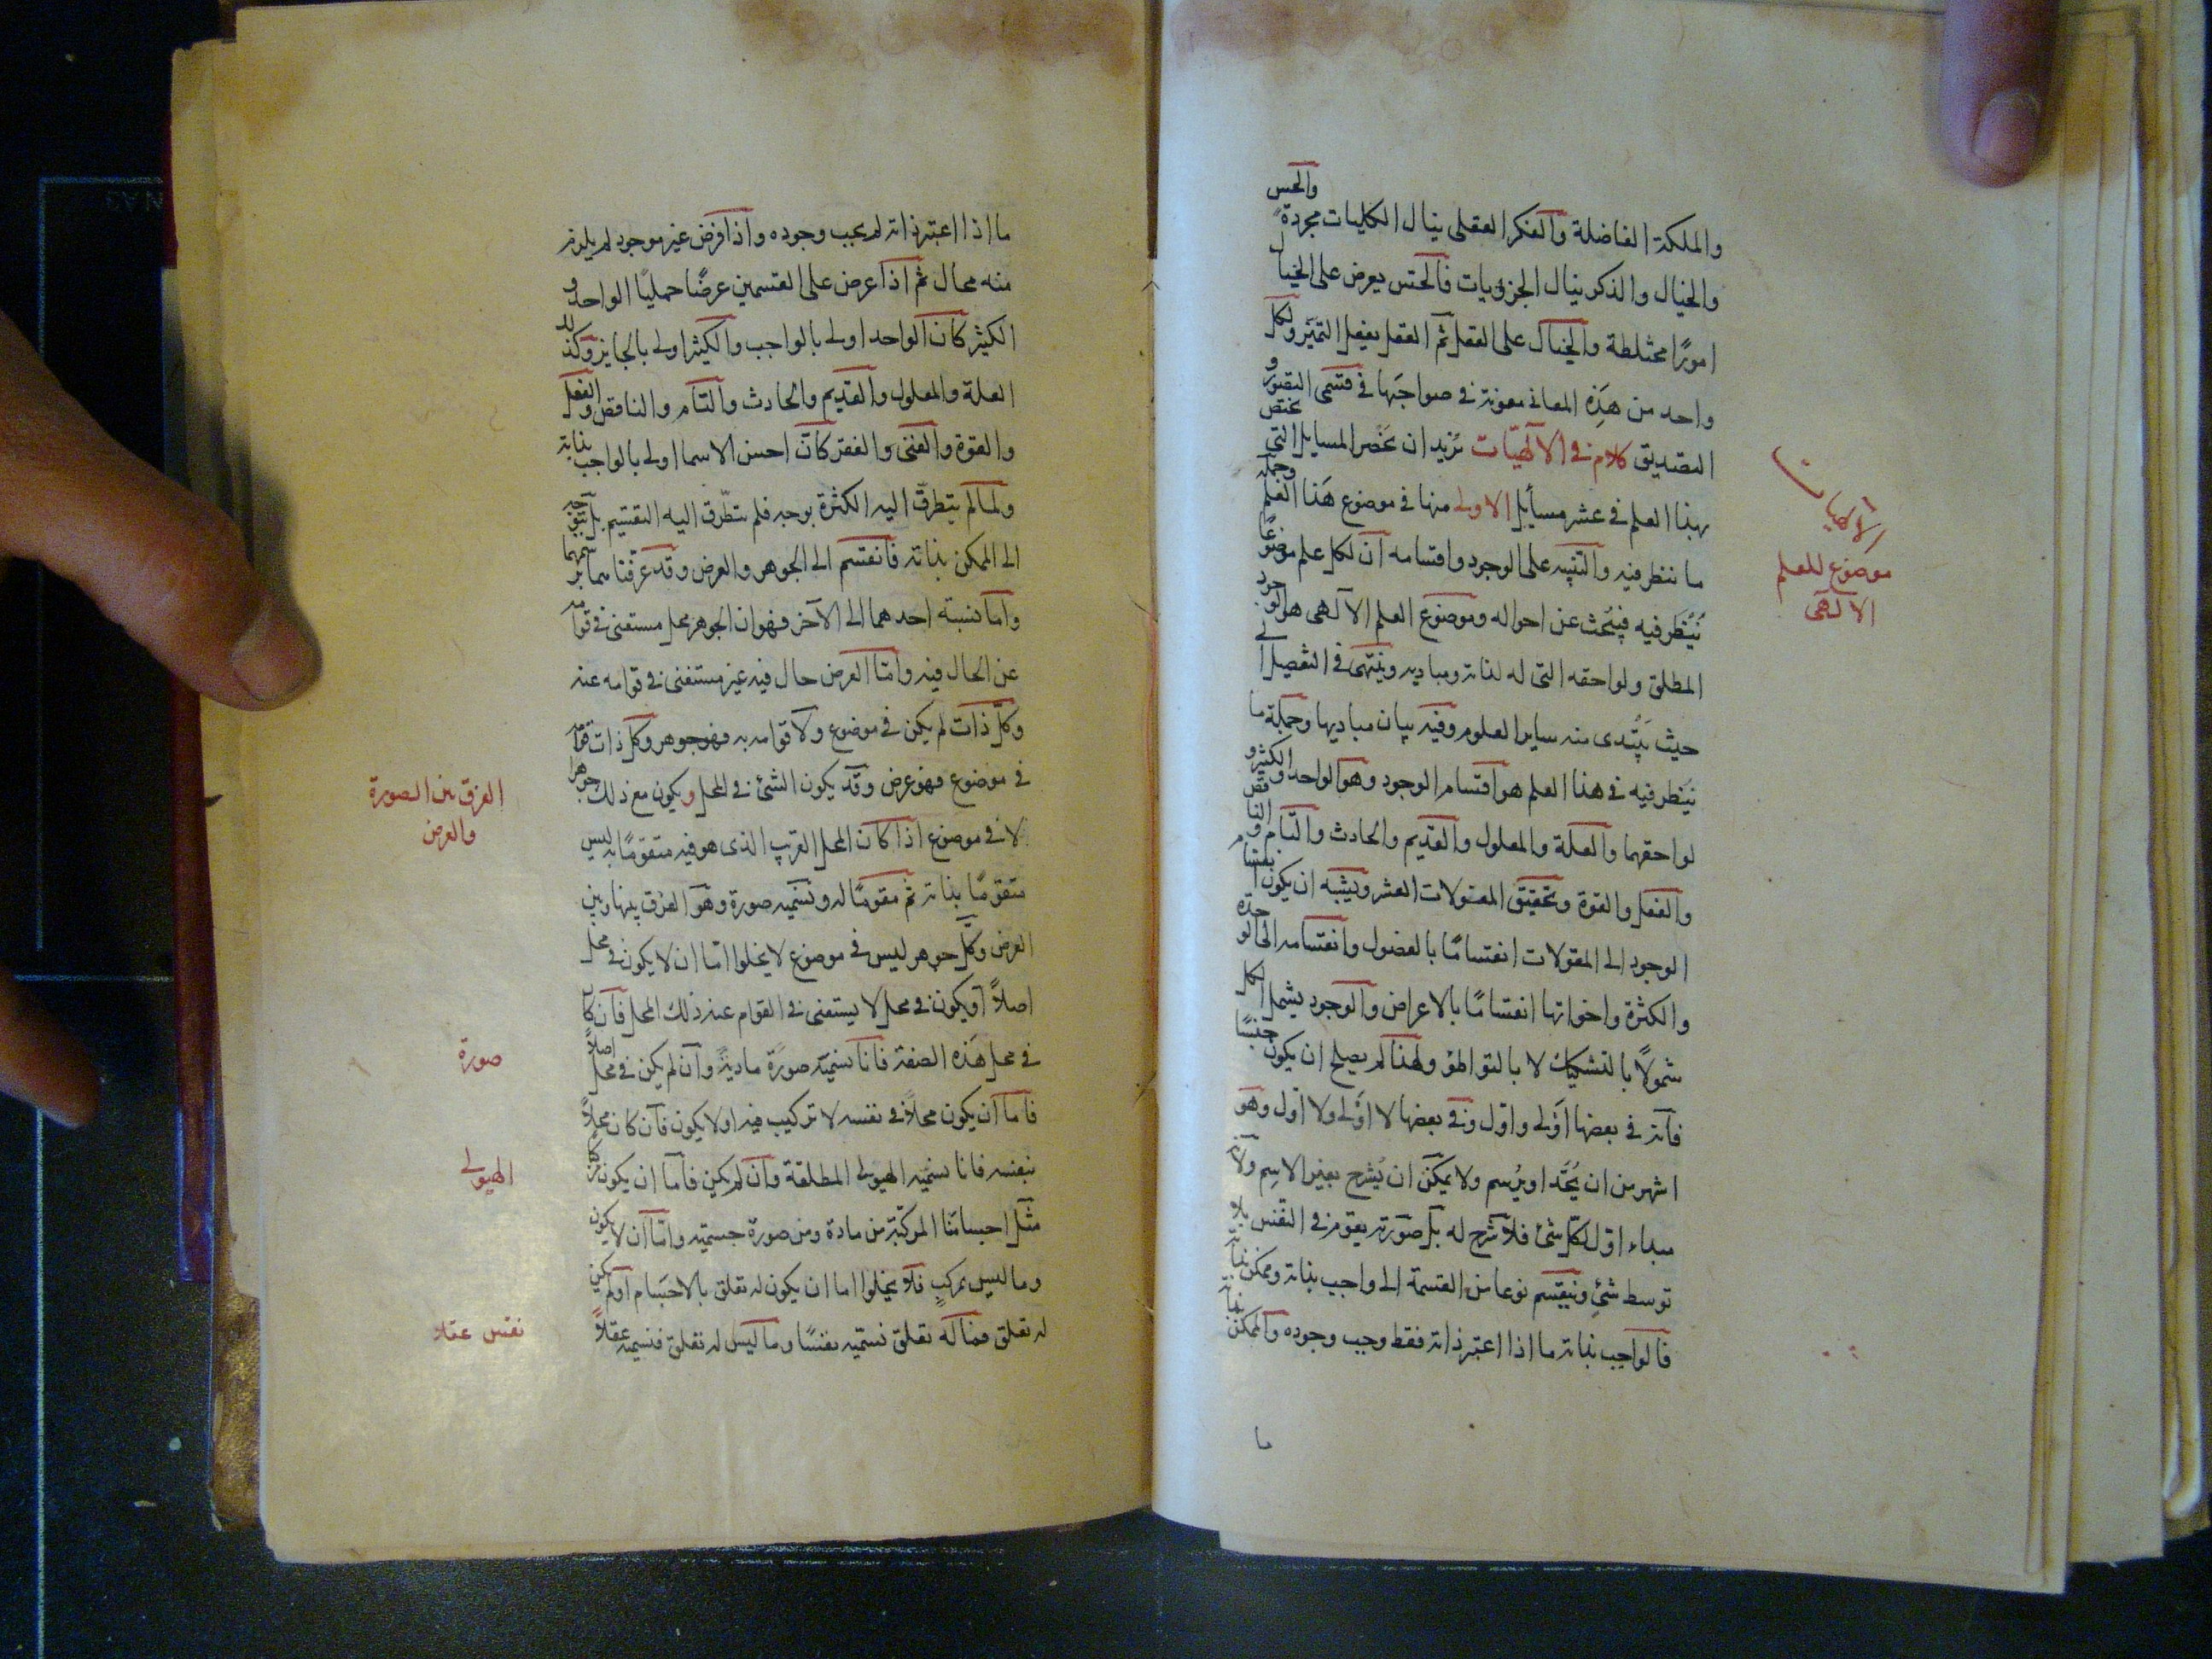 والملكة الفاضلة والفكر العقلى ينال الكليات مجردة والحس
والخيال والذكر ينال الجزويات فالحس يعرض على الخيال
امورًا مختلطة والخيال على العقل ثم العقل يفعل التميز ولكل
واحد من هَذِه المعانى معونة فى صواحبها فى قسمى التصور و
التصديق كلام فى الآلهيّات نريد ان نحصر المسايل التى تختص
بهذا العلم فى عشر مسأيل الاولى منها فى موضوع هَذا العلم وجملة
ما ننظر فيه والتنبيه على الوجود واقسامه ان لكل علم موضوعًا
يُنظَر فيه فيبَحث عن احواله وموضوع العلم الآلهى هو الوجود
المطلق ولواحقه التى له لذاته ومباديه وينتهى فى التفصيل الى
حيث يَبتدى منه ساير العلوم وفيه بيان مباديها وجملة ما
ينَظر فيه فى هذا العلم هو اقسام الوجود وهو الواحد والكثير و
لواحقهما والعلة والمعلول والقديم والحادث والتام والناقص
والفعل والقوة وتحقيق المقولات العشر ويشبه ان يكون انقسام
الوجود الى المقولات انقسامًا بالفصول وانقسامه الى الوحدة
والكثرة واخواتها انقسامًا بالاعراض والوجود يشمل الكل
شمولًا بالتشكيك لا بالتواطؤ ولهذا لم يصلح ان يكون جنسًا
فانه فى بعضها اَولى واوّل وفى بعضها لا اَولى ولا اول وهو
اشهر من ان يُحَد او يُرسم ولا يمكن ان يُشرح بغير الاسم ولانه
مبداء اول لكل شئ فلا شرح له بل صورته يقوم فى النفس بلا
توسط شئٍ وينقسم نوعا من القسمة الى واجب بذاته وممكن بذاته
فالواجب بذاته ما اذا اعتبر ذاته فقط وجب وجوده والممكن بذاته
ما
الآلهيات
موضوع للعلم
الآلهى
ما اذا اعتبر ذاته لم يجب وجوده واذا فرض غير موجود لم يلزم
منه محال ثم اذا عرض على القسمين عرضًا حمليًا الواحد و
الكثير كان الواحد اولى بالواجب والكثير اولى بالجايز وكذلك
العلة والمعلول والقديم والحادث والتام والناقص والفعل
والقوة والغنى والفقر كان احسن الاسما اولى بالواجب بذاته
ولما لم يتطرق اليه الكثرة بوجه فلم يتطرق اليه التقسيم بل يتوجه
الى الممكن بذاته فانقسم الى الجوهر والعرض وقد عرفنا هما برسمهما
واما نسبة احدهما الى الآخر فهو ان الجوهر محل مستغنى فى قوامه
عن الحال فيه واما العرض حال فيه غير مستغنى فى قوامه عنه
وكل ذات لم يكن فى موضوع ولا قوامه به فهو جوهر وكل ذات قوامه
فى موضوع فهو عرض وقد يكون الشئ فى المحل ويكون مع ذلك جوهرا
لا فى موضوع اذا كان المحل القريب الذى هو فيه متقومًا به ليس
متقومًا بذاته ثم مقومًا له ونسميه صورة وهو الفرق بينها وبين
العرض وكل جوهر ليس فى موضوع لا يخلوا اما ان لا يكون فى محل
اصلاً او يكون فى محل لا يستغنى فى القوام عنه ذلك المحل فان كان
فى محل هَذه الصفة فانا نسميه صورة مادية وان لم يكن فى محل اصلاً
فاما ان يكون محلاً فى نفسه لا تركيب فيه اولا يكون فان كان محلاً
بنفسه فانا نسميه الهيولى المطلقة وان لم يكن فاما ان يكون مركبًا
مثل اجسامنا المركبة من مادة ومن صورة جسمية واما ان لا يكون
وما ليس بمركبٍ فلا يخلوا اما ان يكون له تعلق بالاجسام اولم يكن
له تعلق فما له تعلق نسميه نفسًا وما ليس له تعلق فنسميه عقلاً
الفرق بين الصورة
والعرض
صورة
الهيولى
نفس عقلا